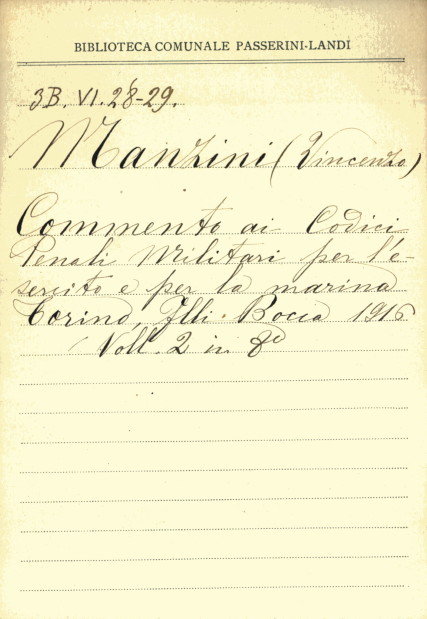 BIBLIOTECA COMUNALE PASSERINI-LANDI
3B. VI. 28-29.
Manzini (Vincenzo)
Commento ai Codici
Penali Militari per l'e-
sercito e per la marina
Torino, Flli. Bocca 1916
Voll. 2 in 8º